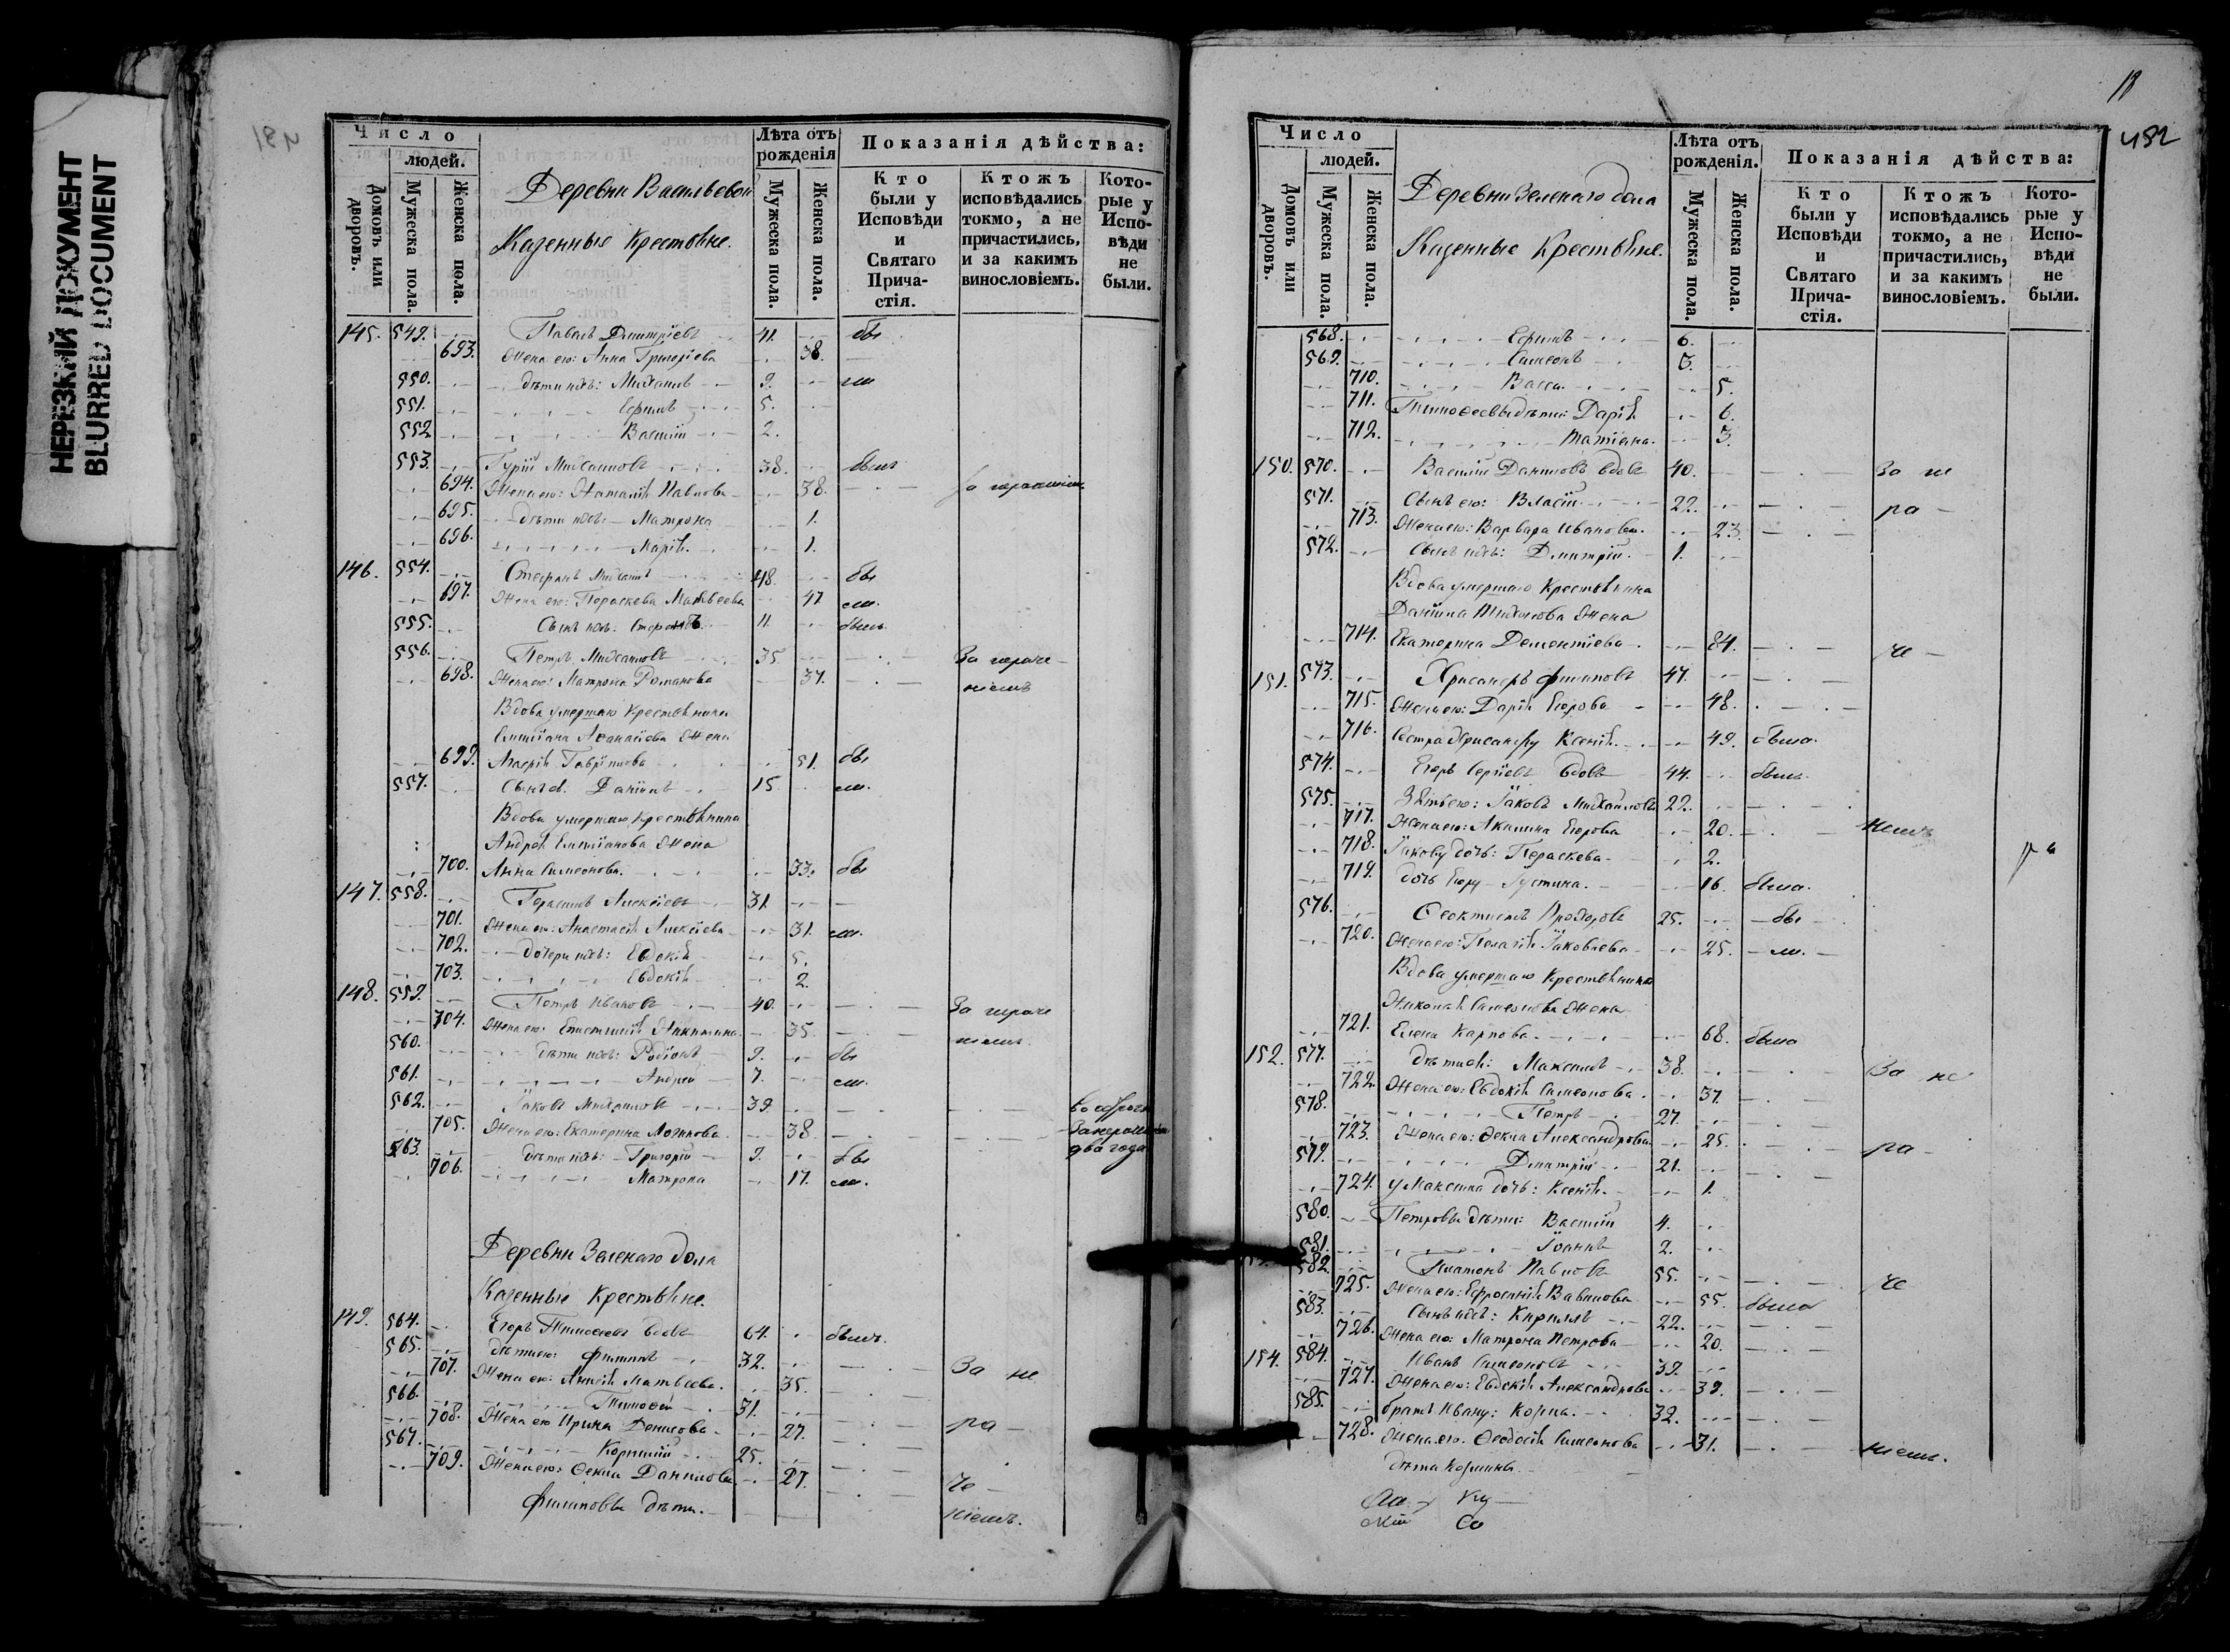 НЕРЕЗКИЙ ДОКУМЕНТ
BLURRED DOCUMENT
481
Число
людей.
Домовъ или дворовъ.
Мужеска пола.
Женска пола.
Деревни Васильевой
Казенные Крестьяне.
Лѣта отъ рожденія
Мужеска пола.
Женска пола.
Показанія дѣйства:
Кто были у Исповѣди и Святаго Причастія.
Ктожъ исповѣдались токмо, а не причастились, и за какимъ винословіемъ.
Которые у Исповѣди не были.
145. 549. Павелъ Дмитріевъ 41. бы
693. Жена его: Анна Григоріева 38.
550. дѣти ихъ: Михаилъ 9. ли
551. Ефимъ 5.
552 Василій 2.
553. Гурій Михаиловъ 38. былъ
694. Жена его: Наталія Павлова 38. За нерачениемъ
695. дѣти ихъ: Матрона 1.
696. Марія 1.
146. 554. Стефанъ Михаиловъ 48. бы
697. Жена его: Параскева Матвѣева 47 ли.
555. Сынъ ихъ: 11. былъ
556. Петръ Михаиловъ 35 За нераче
698. Жена его: Матрона Романова 37. ніемъ
Вдова умершаго Крестьянина
Емиліана Аѳанасіева Жена
699. Гавріилова 51. бы
557. Сынъ ея: Даніилъ 15 ли.
Вдова умершаго Крестьянина
Андрея Емиліанова Жена
700. Анна Симеонова 33. бы
147. 558. Герасимъ Алексіевъ 31.
701. Жена его: Анастасія Алексіева 31. ли.
702. дочери ихъ: Евдокія 5.
703. Евдокія 2.
148. 559. Петръ Ивановъ 40. За нераче
704. Жена его: Епистимія Никитина 35 ніемъ
560. дѣти ихъ: Родіонъ 9. бы
561. Андрей 7. ли.
562. Іаковъ Михаиловъ 39.
705. Жена его: Екатерина Логинова 38 два года
563. дѣти ихъ: Григорій 9. бы
706. Матрона 17. ли.
Деревни Зеленаго дола
Казенные Крестьяне.
149. 564. Егоръ Тимоѳеевъ вдовъ 64. былъ.
565. дѣти его: Филиппъ 32. За не
707. Жена его: Анисія Матвѣева 35.
566. Тимоѳей 31.
708. Жена его Ирина Денисова 27. ра
567. Корнилій 25.
709. Жена его: Ѳекла Данилова 27. че
Филиповы дѣти. ніемъ.
18
482
Число
людей.
Домовъ или дворовъ.
Мужеска пола.
Женска пола.
Деревни Зеленаго дола
Казенные Крестьяне.
Лѣта отъ рожденія.
Мужеска пола.
Женска пола.
Показанія дѣйства:
Кто были у Исповѣди и Святаго Причастія.
Ктожъ исповѣдались токмо, а не причастились, и за какимъ винословіемъ.
Которые у Исповѣди не были.
568. Ефимъ 6.
569. Симеонъ 3.
710. Васса 5.
711. Тимоѳеевы дѣти: Дарія 6.
712. Татіана. 3.
150. 570. Василій Даниловъ вдовъ 40. За не
571. Сынъ его: Власій 22. ра
713. Жена его: Варвара Иванова. 23.
572. Сынъ ихъ: Димитрій. 1.
Вдова умершаго Крестьянина
Даніила Жена
714. Екатерина Дементіева. 84. че
151. 573. Хрисанѳъ Филиповъ 47.
715. Жена его: Дарія Егорова 48.
716. Сестра Хрисанѳу Ксенія. 49. была.
574. Егоръ Сергіевъ вдовъ 44. былъ.
575. Зять его: Іаковъ Михайловъ 22.
717. Жена его: Акилина Егорова 20. ніемъ
718. Іакову дочь: Параскева 2. ра
719. дочь Егору Іустина. 16. была.
576. Ѳеоктистъ Прохоровъ 25. бы
720. Жена его: Пелагія Іаковлева 25. ли.
Вдова умершаго Крестьянина
Николая Симеонова Жена
721. Елена Карпова. 68. была
152. 577. дѣти ея: Максимъ 38. За не
722. Жена его: Евдокія Симеонова. 37.
578. Петръ 27.
723. Жена его: Ѳекла Александрова 25. ра
579. Дмитрій 21.
724. у Максима дочь: Ксенія. 1.
580. Петровы дѣти: Василій 4.
581. Іоаннъ 2.
582. Платонъ Павловъ 55. че
725. Жена его: Ефросинія Вавилова 55. была
583. Сынъ ихъ: Кириллъ 22.
726. Жена его: Матрона Петрова 20.
154. 584. Иванъ Симеоновъ 39.
727. Жена его: Евдокія Александрова 39.
585. братъ Ивану: Козма. 32.
728. Жена его: Ѳеодосія Симеонова 31. ніемъ.
дѣти Козмины